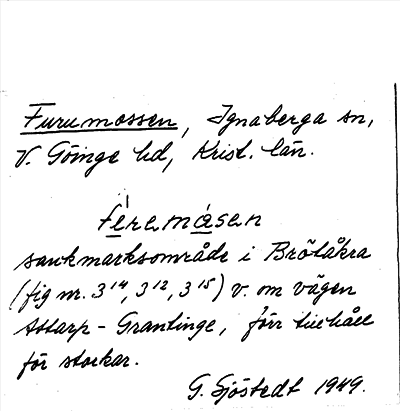 Furumossen, Ignaberga sn,
V. Göinge hd, Krist. län.
féremåsen
sankmarksområde i Brölåkra
(fig nr. 3¹⁴, 3¹², 3¹⁵) v. om vägen
Attarp - Grantinge, förr tillhåll
för storkar.
G. Sjöstedt 1949.